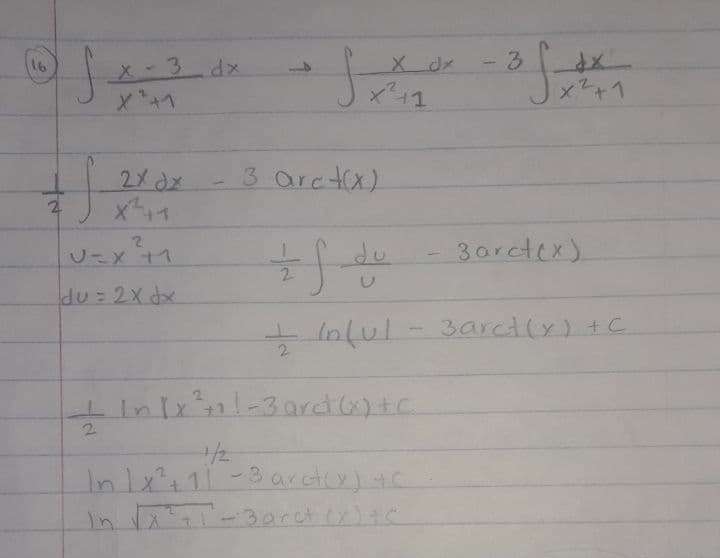 16 ∫ x - 3 / x²+1 dx → ∫ x dx / x²+1 - 3 ∫ dx / x²+1
1/2 ∫ 2x dx / x²+1 - 3 arct(x)
u = x²+1
du = 2x dx
1/2 ∫ du / u - 3 arct(x)
1/2 ln|u| - 3 arct(x) + C
1/2 ln|x²+1| - 3 arct(x) + C
ln|x²+1|^1/2 - 3 arct(x) + C
ln √x²+1 - 3 arct(x) + C